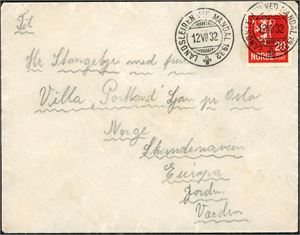 Til
LANDSLEIREN VED MANDAL 1932
12 VII 32
20
NORGE
Hr Stangebye med frue
Villa Portland Ljan pr Oslo
Norge
Skandenavien
Europa
Jorden
Verden